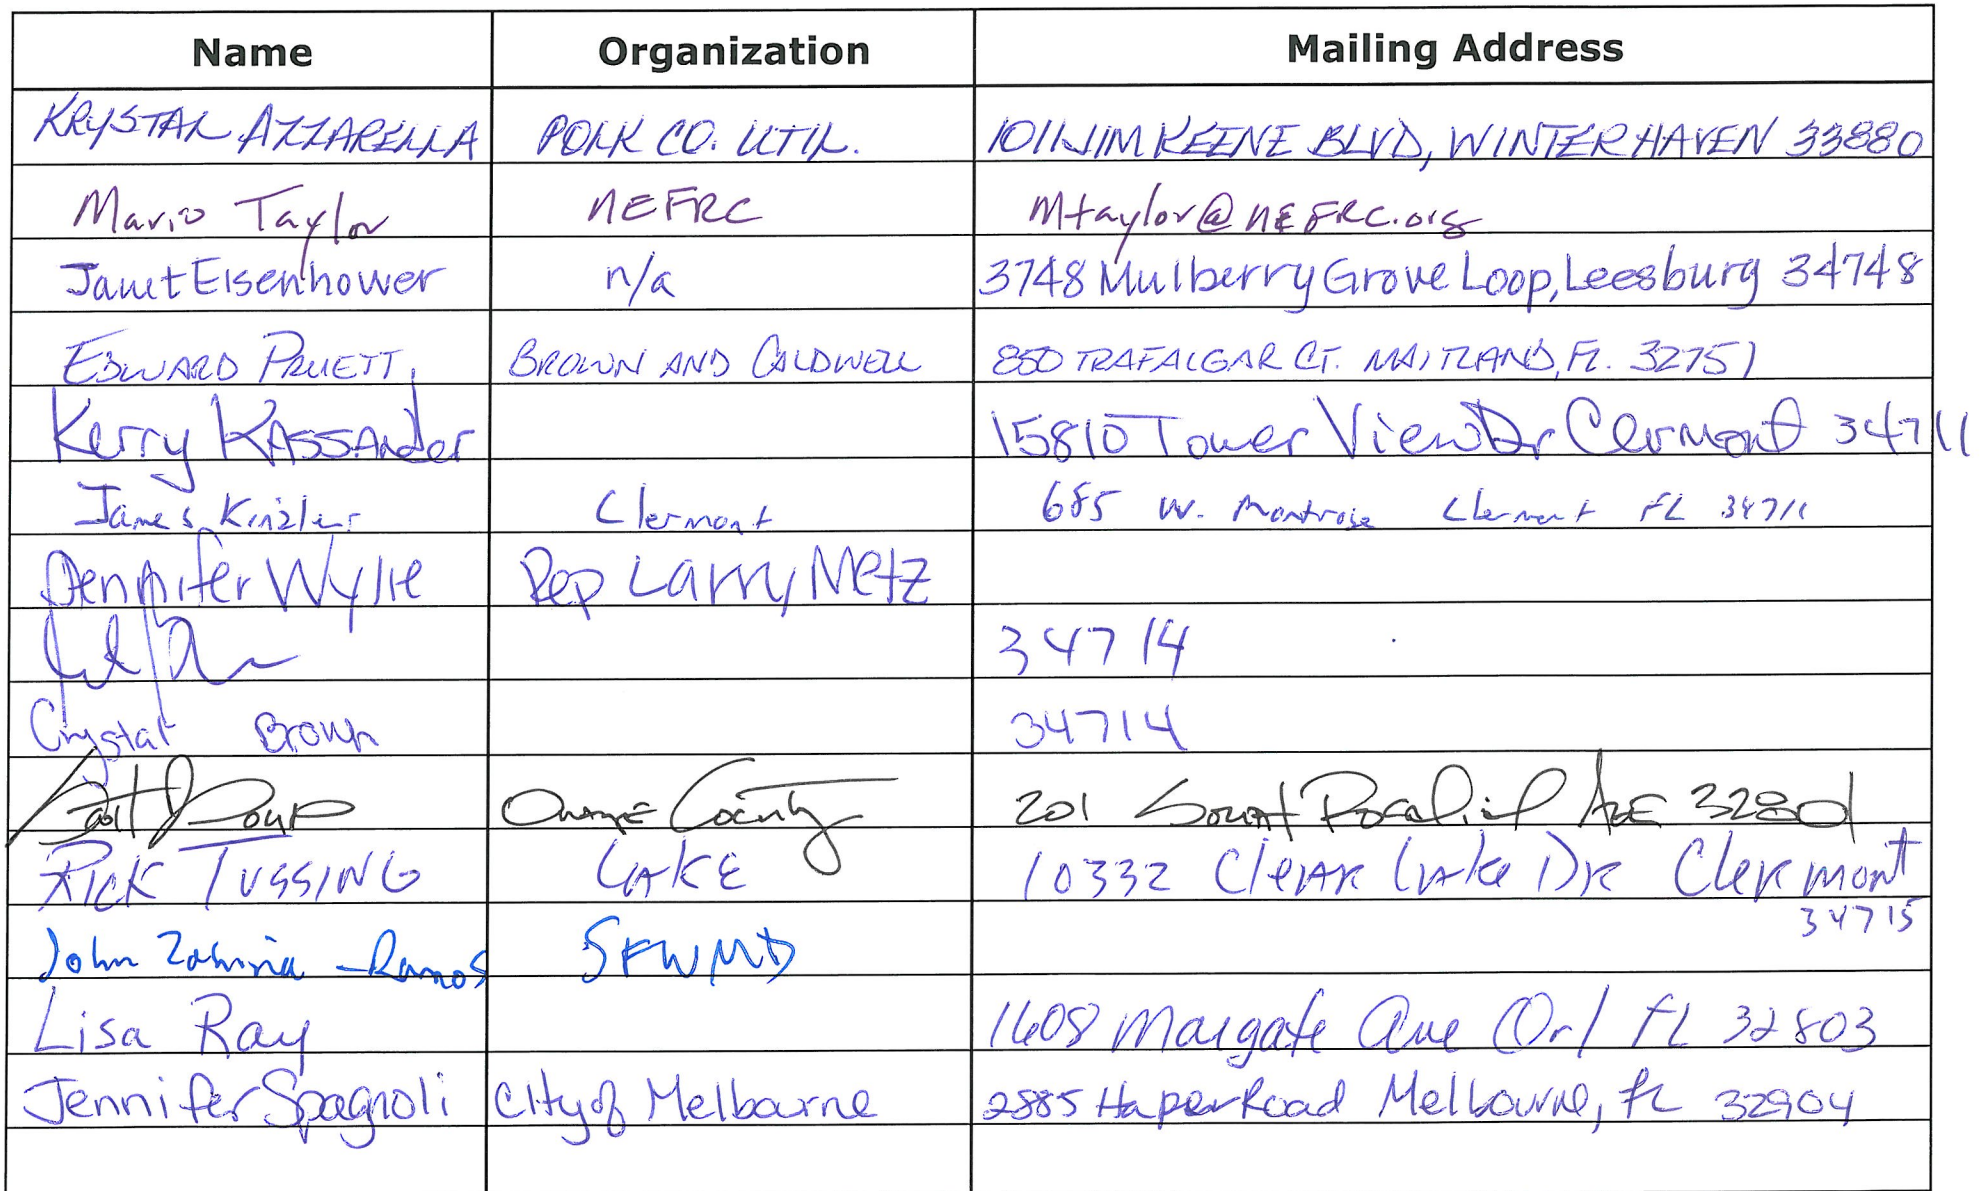 Name Organization Mailing Address
KRYSTAL AZZARELLA POLK CO. UTIL. 1011 JIM KEENE BLVD, WINTER HAVEN 33880
Mario Taylor NEFRC Mtaylor@NEFRC.org
Janet Eisenhower n/a 3748 Mulberry Grove Loop, Leesburg 34748
EDWARD PRUETT BROWN AND CALDWELL 850 TRAFALGAR CT. MAITLAND, FL. 32751
Kerry Kassander 15810 Tower View Dr Clermont 34711
James Kinzler Clermont 685 W. Montrose Clermont FL 34711
Jennifer Wylie Rep Larry Metz
34714
Crystal Brown 34714
Orange County 201 South Rosalind Ave 32801
Rick Tussing Lake 10332 Clear Lake Dr Clermont
34715
John Zahina-Ramos SFWMD
Lisa Ray 1608 Margate Ave Orl FL 32803
Jennifer Spagnoli City of Melbourne 2885 Haper Road Melbourne, FL 32904